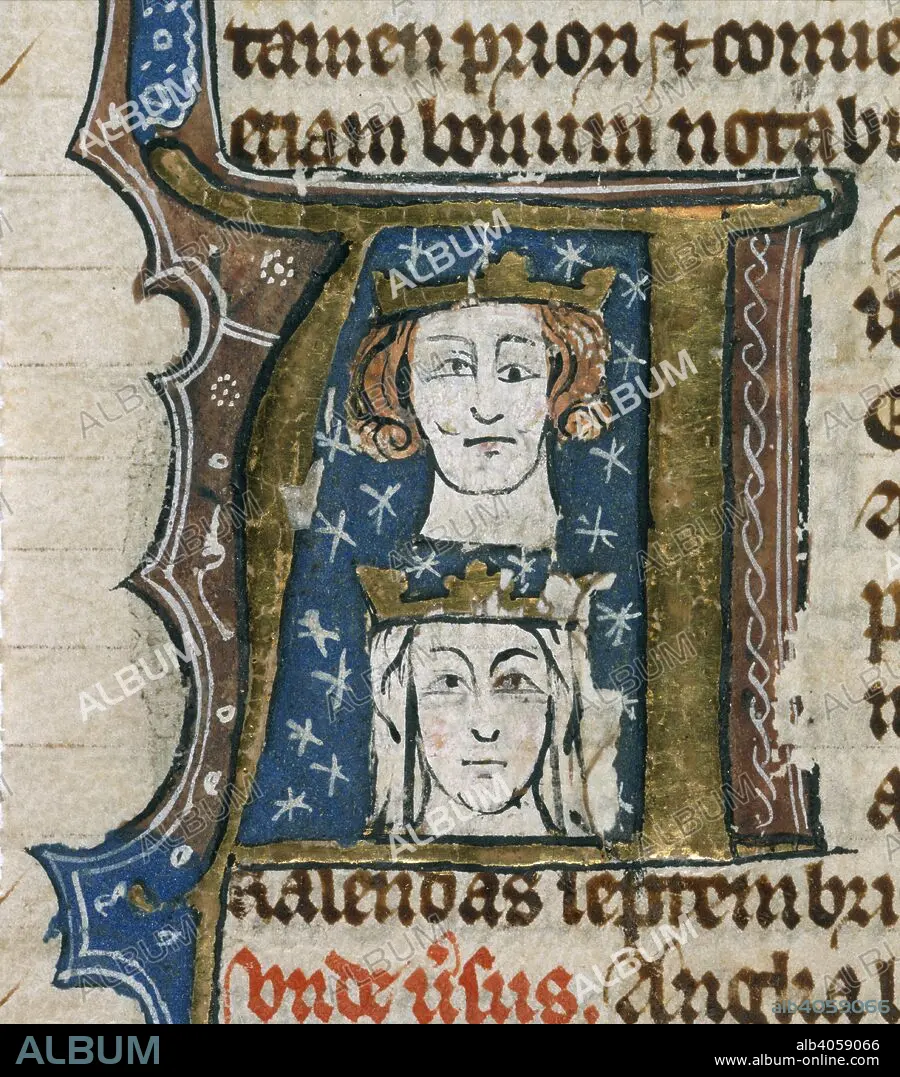 tamen priori & conue
etiam bonum notabi
kalendas septembri
vnde ūsus. Angli
ALBUM
alb4059066
ALBUM
alb4059066
www.album-online.com